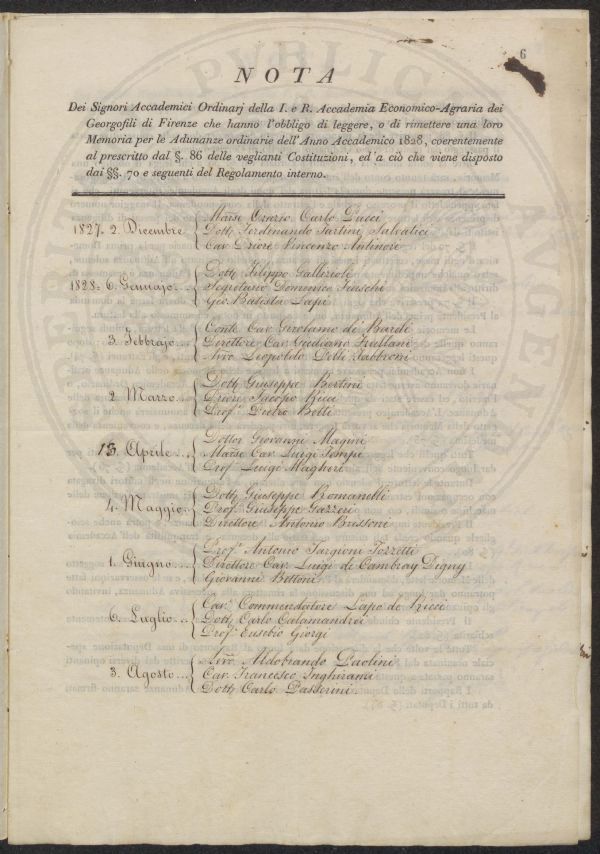 6
NOTA
Dei Signori Accademici Ordinarj della I. e R. Accademia Economico-Agraria dei
Georgofili di Firenze che hanno l'obbligo di leggere, o di rimettere una loro
Memoria per le Adunanze ordinarie dell'Anno Accademico 1828, coerentemente
al prescritto dal §. 86 delle veglianti Costituzioni, ed'a ciò che viene disposto
dai §§. 70 e seguenti del Regolamento interno.
Marse Orazio Carlo Pucci
1827. 2. Decembre Dott. Ferdinando Tartini Salvatici
Cav. Priore Vincenzo Antinori
Dott. Filippo Gallizioli
1828. 6. Gennajo Segretario Domenico
Gio. Batista Lapi
Conte Cav. Girolamo de' Bardi
3. Febbrajo Direttore Cav. Giuliano Frullani
Avv. Leopoldo Pelli Fabbroni
Dott. Giuseppe Bertini
2 Marzo Priore Jacopo Ricci
Prof. Pietro Betti
Dottor Giovanni Magini
13 Aprile Marse Cav. Luigi Tempi
Prof. Luigi Magheri
Dott. Giuseppe Romanelli
4. Maggio Prof. Giuseppe Gazzeri
Direttore Antonio Brissoni
Prof. Antonio Targioni Tozzetti
1. Giugno Direttore Cav. Luigi de Cambray Digny
Giovanni Bittoni
Cav. Commendatore Lapo de Ricci
6. Luglio Dott. Carlo Calamandrei
Prof. Eusebio Giorgi
Avv. Aldobrando Paolini
3. Agosto Cav. Francesco Inghirami
Dott. Carlo Passerini